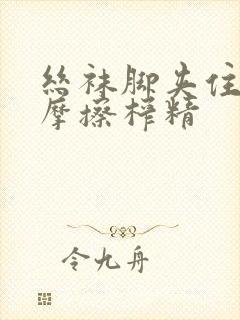 丝袜脚夹住
摩擦榨精
令九舟